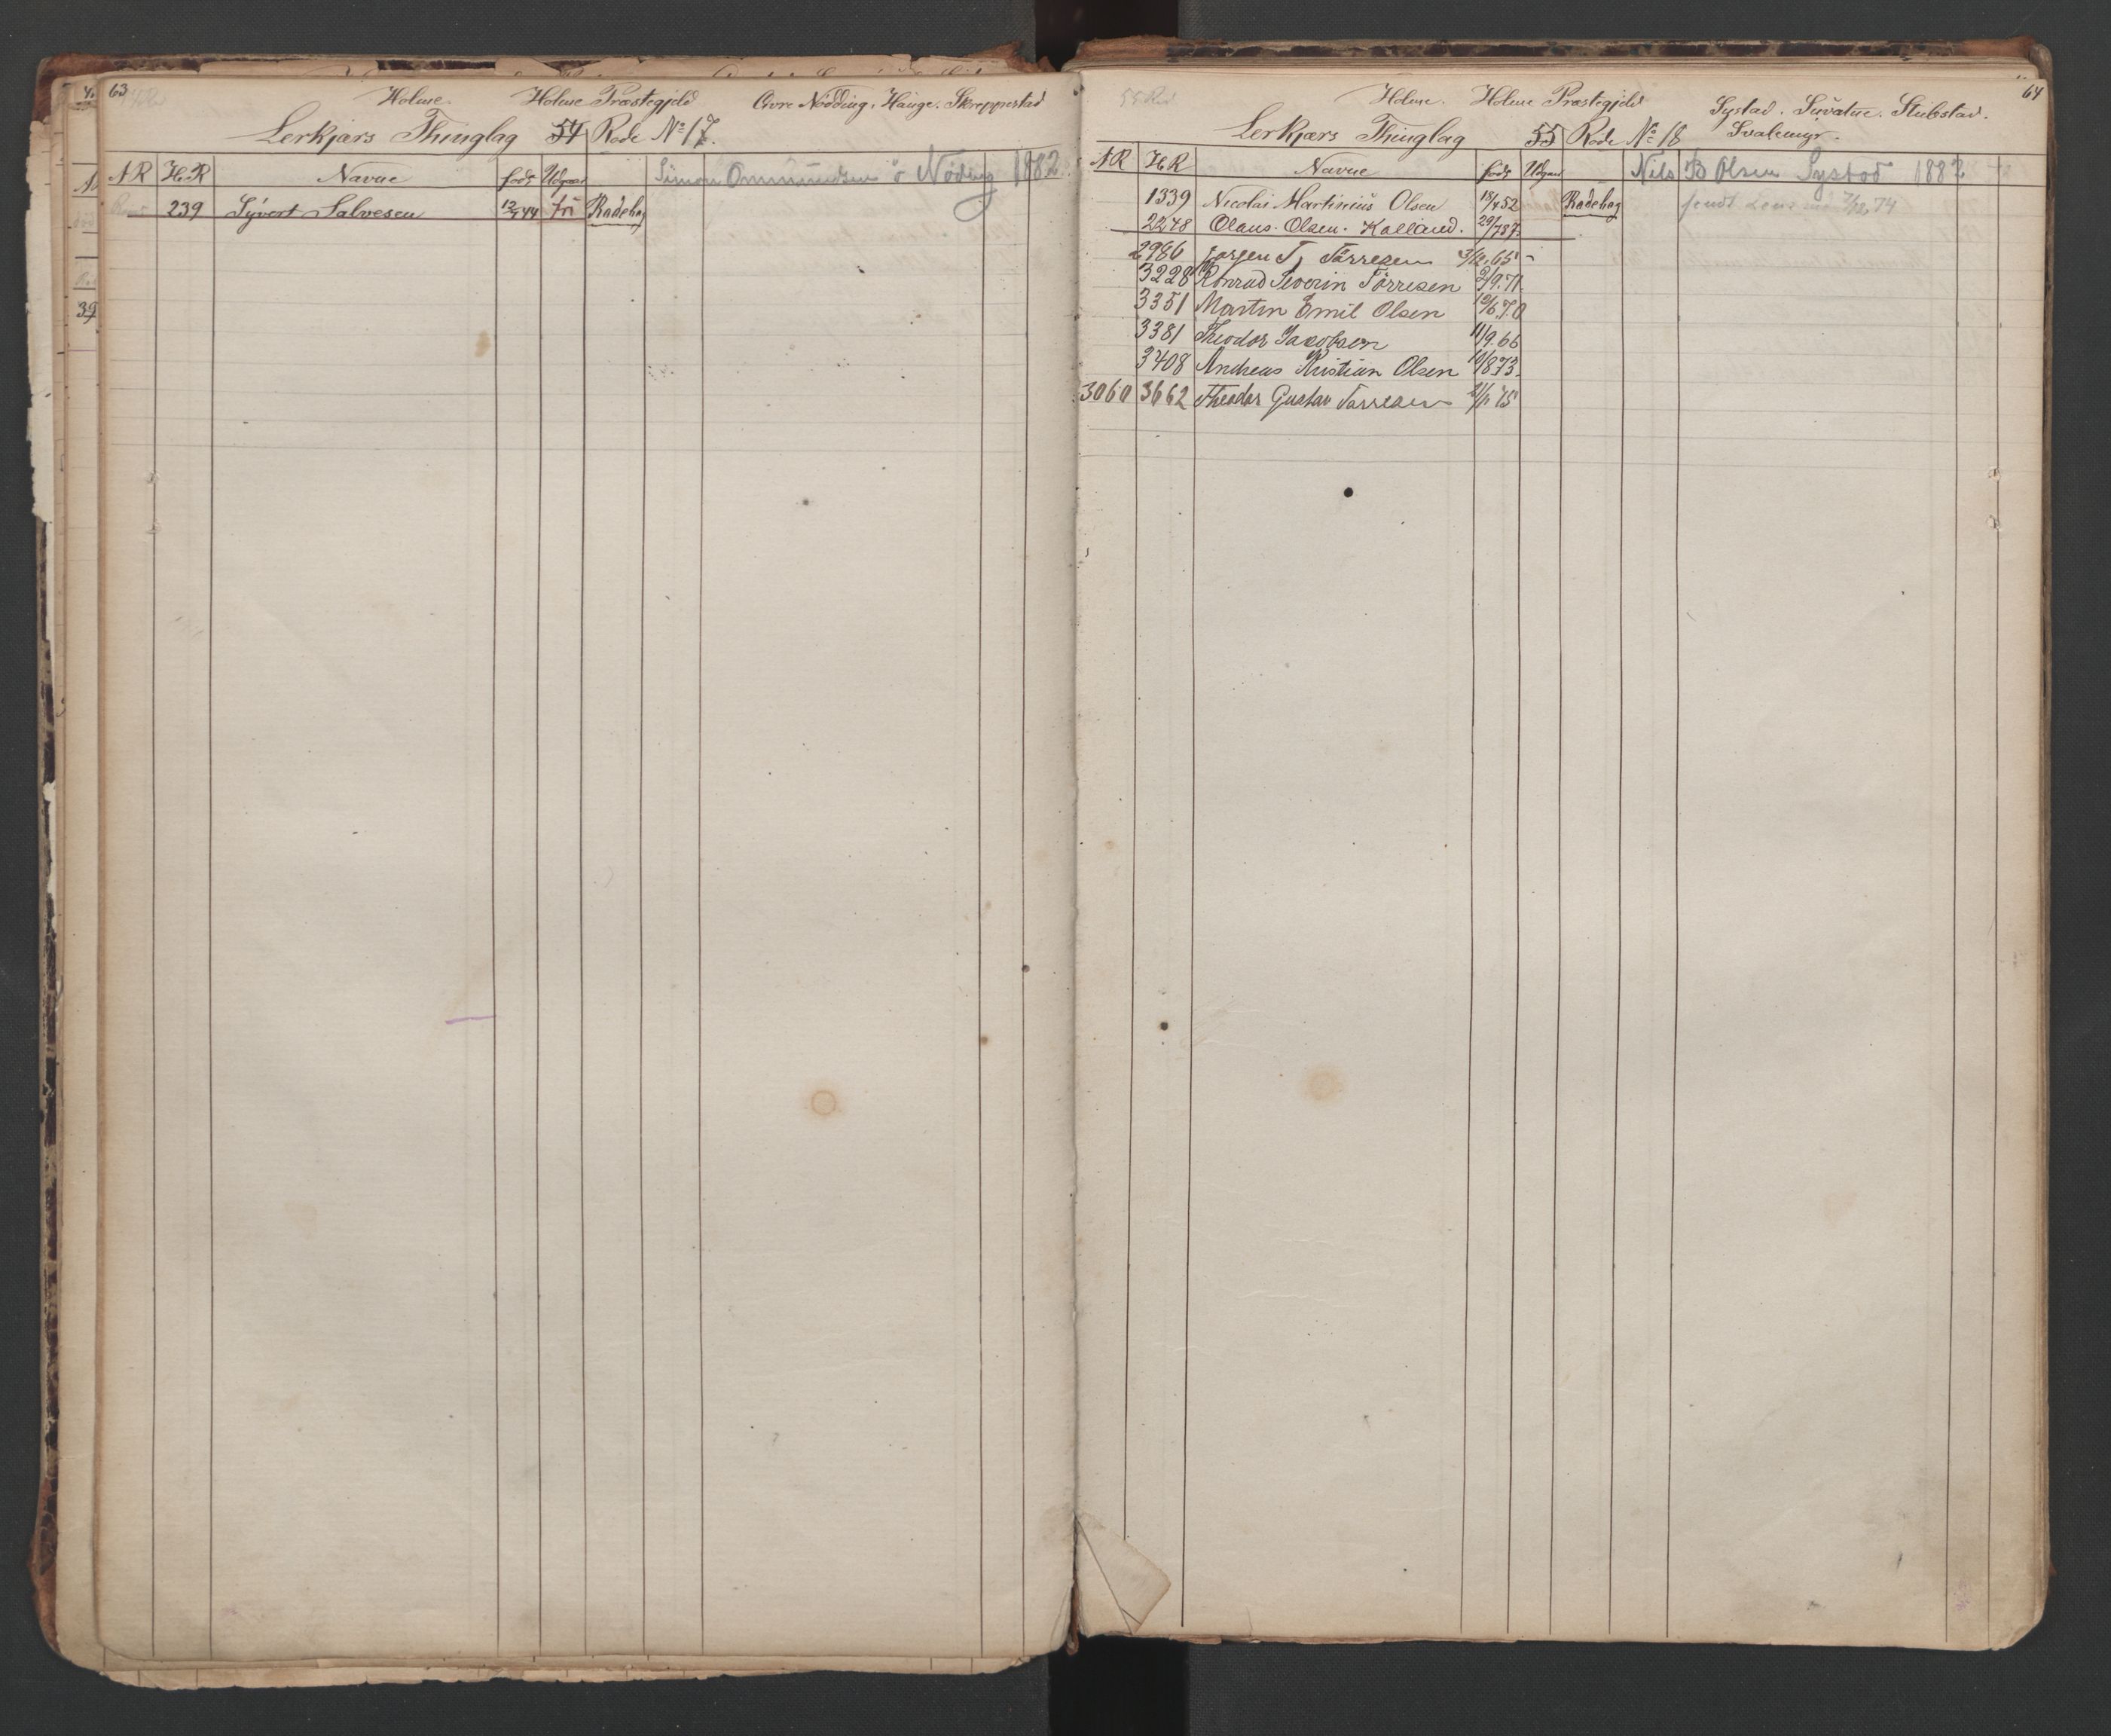 63
Holme. Holme Præstegjeld Øvre Nødding. Hauge. Skreppestad
Lerkjærs Thinglag 54 Rode No 17.
AR HR Navne født Udgaar Simon Ommundsen ö Nöding 1882
239 Syvert Salvesen 12/4 44 fri Rodebog
39
64
55 Rd
Holme. Holme Præstegjeld Systad. Suvatne. Stubstad.
Lerkjærs Thinglag 55 Rode No 18 Svalemyr.
AR HR Navne født Udgaar Nils B Olsen Systad 1882
1339 Nicolai Martinius Olsen 18/4 52 Rodebog
2248 Olaus Olsen Kalland. 29/7 37
2986 Jørgen T. Tørresen 3/12.65
3228 Konrad Severin Tørresen 2/9.71.
3351 Martin Emil Olsen 10/6 70
3381 Theodor Jacobsen 11/9.66
3408 Andreas Kristian Olsen 10/8 73.
3060 3662 Theodor Gustav Tørresen 21/1 75